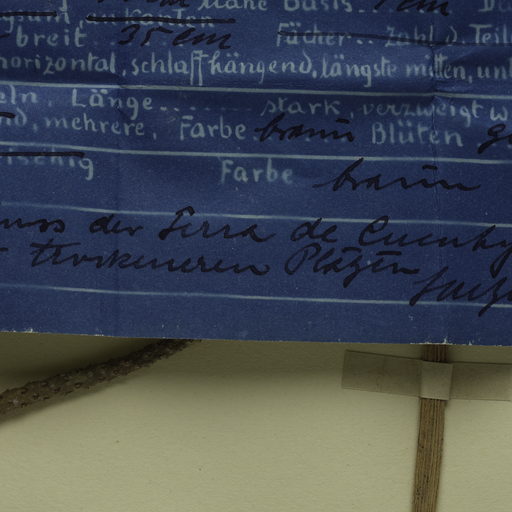 Nähe Basis 7 cm
breit 35 cm Fächer.. Zahl d. Teil
horizontal, schlaff hängend, längste mitten, unt
eln, Länge....... stark, verzweigt w
d, mehrere, Farbe braun Blüten
ischig Farbe braun
uss der Serra de Cucuhy
trockeneren Plätzen